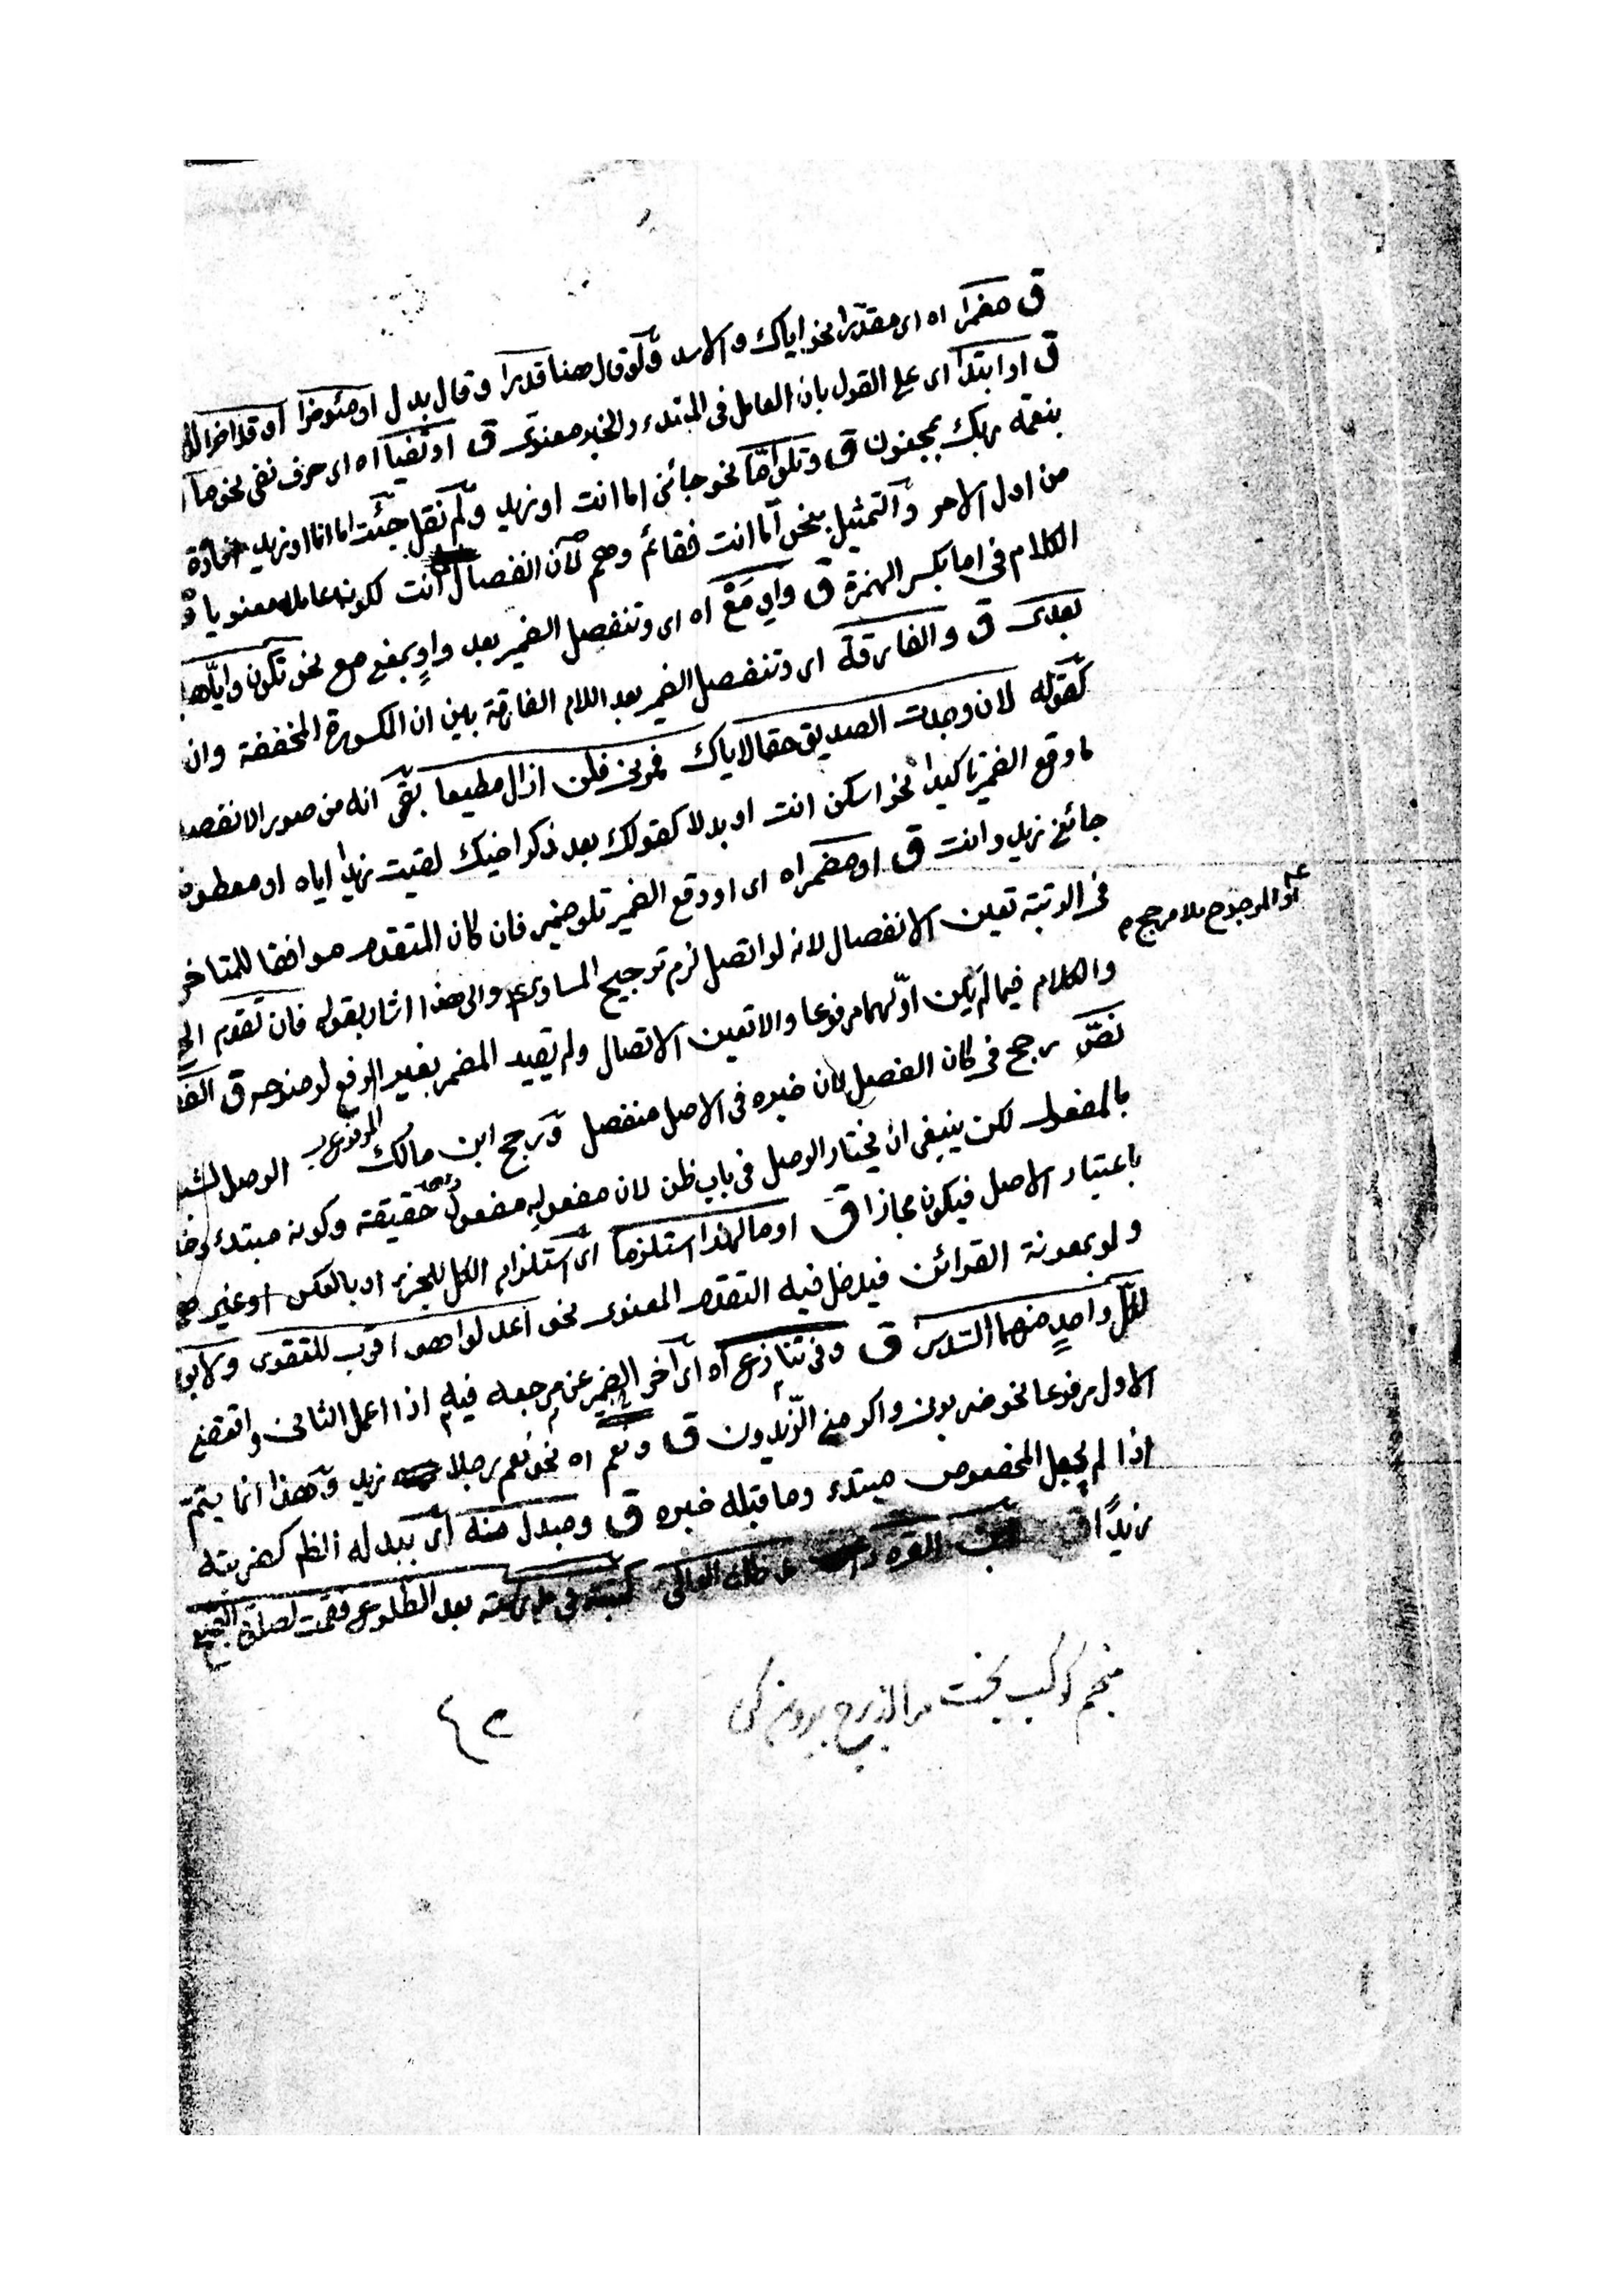 ق مضمرا اه اى مقدرا نحو اياك والاسد ولو قال هنا قدرا وقال بدل او مئوخرا او قد اخرا
ق او ابتدا اى على القول بان العامل فى المبتدء والخبر معنوى ق او نفيا اه اى حرف نفى نحو ما
بنعمة ربك بمجنون ق وتلو اما نحو جائنى اما انت او زيد ولم نقل جئت اما انا او زيد
من اول الامر والتمثيل بنحو اما انت فقائم وهم لان انفصال انت لكونه عامله معنويا
الكلام فى اما بكسر الهمزة ق واو مع اه اى وتنفصل الضمير بعد واو بمعنى مع نحو تكون واياها
بعدى ق والفارقة اى وتنفصل الضمير بعد اللام الفارقة بين ان المكسورة المخففة وان
كقوله لان وجدت الصديق حقا لاياك فمرنى فلن ازال مطيعا بقى انه من صور الانفصال
ما وقع الضمير تاكيدا نحو اسكن انت او بدلا كقولك بعد ذكر اخيك لقيت زيدا اياه او معطوفا
جائنى زيد وانت ق او مضمرا اه اى او وقع الضمير تلو ضمير فان كان المتقدم موافقا للمتاخر
فى الرتبة تعين الانفصال لانه لو اتصل لزم ترجيح المساوى والى هذا اشار بقوله فان تقدم
او المرجوح بلا مرجح
والكلام فيما لم يكن اولهما مرفوعا والا تعين الاتصال ولم يقيد المضمر بغير الرفع لوضوحه ق
نص رجح فى كان الفصل لان خبره فى الاصل منفصل ورجح ابن مالك الوصل
بالمفعول لكن ينبغى ان يختار الوصل فى باب ظن لان مفعوليه مفعول حقيقة وكونه مبتدء
باعتبار الاصل فيكون مجازا ق او ما لهذا استلزما اى استلزام الكل للجزء او بالعكس او غير
ولو بمعونة القرائن فيدخل فيه التقدم المعنوى نحو اعدلوا هو اقرب للتقوى ولابويه
لكل واحد منهما السدس ق وفى تنازع اه اى اخر الضمير عن مرجعه فيه اذا اعمل الثانى واقتضى
الاول مرفوعا نحو ضربونى واكرمنى الزيدون ق ونعم اه نحو نعم رجلا زيد وهذا انما يتم
اذا لم يجعل المخصوص مبتدء وما قبله خبره ق ومبدل منه اى يبدل له الظم كضربته
زيدا كتبته فى بعد الطلوع فقمت لصلوة
منجم كوكب بخت مرا از برج بيرون كن